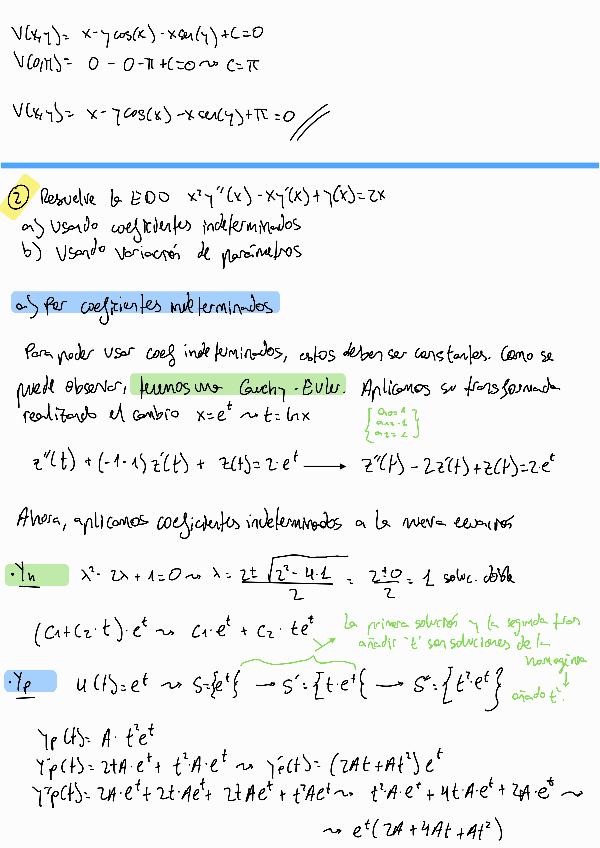 V(x,y)= x-ycos(x)-xsen(y)+C=0
V(0,π)= 0 - 0-π+C=0 ⇝ C=π
V(x,y)= x-ycos(x)-xsen(y)+π=0
② Resuelve la EDO x²y''(x)-xy'(x)+y(x)=2x
a) Usando coeficientes indeterminados
b) Usando variación de parámetros
a) Por coeficientes indeterminados
Para poder usar coef indeterminados, estos deben ser constantes. Como se
puede observar, tenemos una Cauchy-Euler. Aplicamos su transformada
realizando el cambio x=e^t ⇝ t=lnx
z''(t) + (-1-1)z'(t) + z(t)=2·e^t ⟶ z''(t) - 2z'(t)+z(t)=2e^t
Ahora, aplicamos coeficientes indeterminados a la nueva ecuación
·Yh λ²- 2λ+1=0 ⇝ λ= 2±√(2²-4·1) / 2 = 2±0 / 2 = 1 soluc. doble
(C1+C2·t)·e^t ⇝ C1·e^t + C2·te^t
La primera solución y la segunda tras
añadir 't' son soluciones de la
homogénea
↓
añado t².
·Yp u(t)=e^t ⇝ S={e^t} → S'={t·e^t} → S''={t²·e^t}
Yp(t)= A· t²e^t
Y'p(t)= 2tA·e^t+ t²A·e^t ⇝ y'p(t)= (2At+At²)e^t
Y''p(t)= 2A·e^t+2t·Ae^t+ 2tAe^t+t²Ae^t ⇝ t²·A·e^t+4t·A·e^t+2A·e^t ⇝
⇝ e^t(2A+4At+At²)